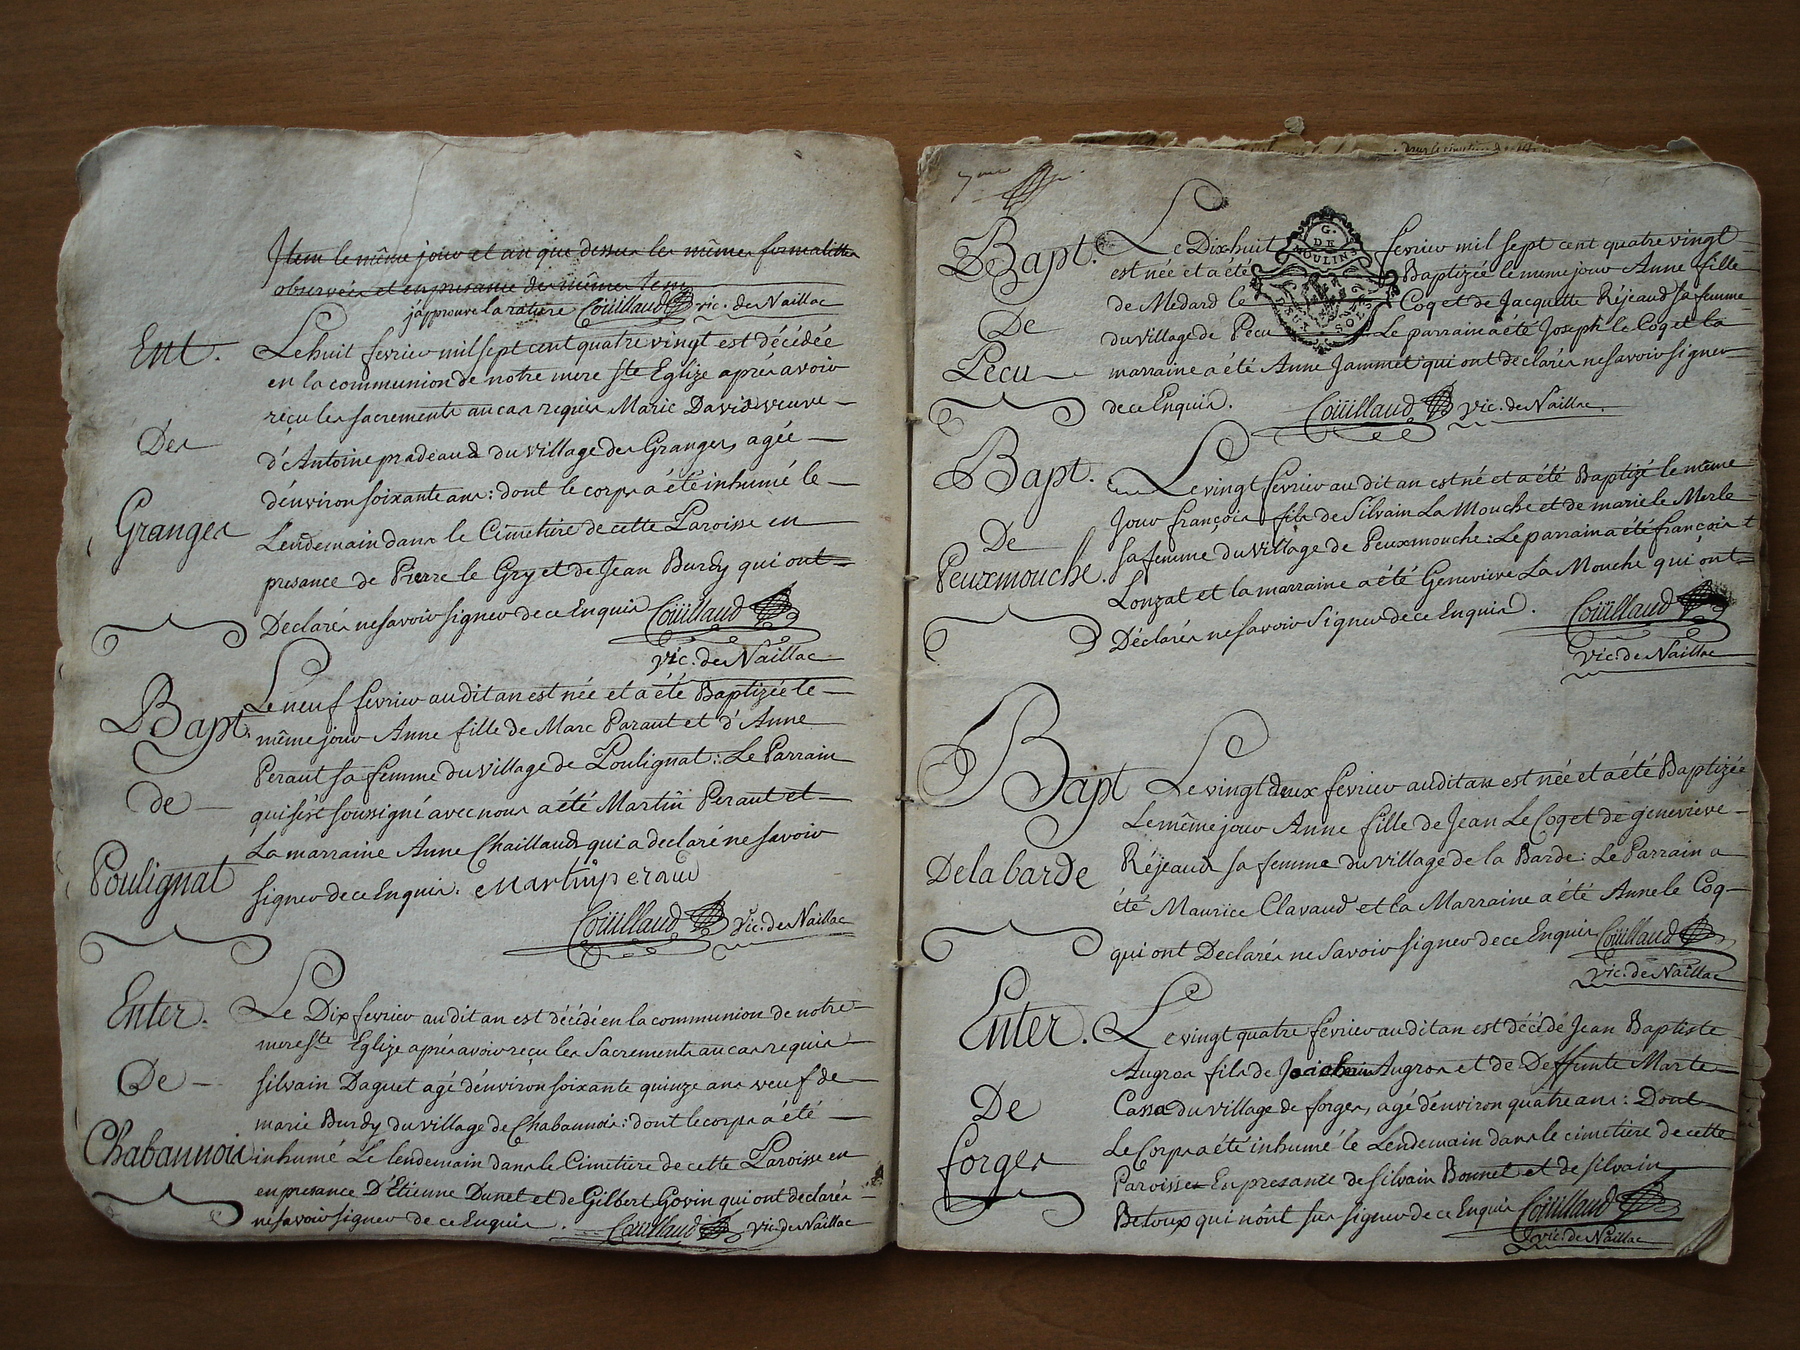 Item le même jour et an que dessus les mêmes formalittes
observées et en presance des mêmes tem
j'approuve la rature Coüillaud vic. de Naillac
Ent.
Des
Granges
Le huit fevrier mil sept cent quatre vingt est décédée
en la communion de notre mere ste Eglize aprés avoir
reçu les sacrements au cas requis Marie David veuve
d'Antoine pradeaud du village des Granges, agée
d'environ soixante ans: dont le corps a été inhumé le
Lendemain dans le Cimetiere de cette Paroisse en
presance de Pierre le Gry et de Jean Burdy qui ont
Declarés ne savoir signer de ce Enquis Coüillaud
vic. de Naillac
Bapt.
de
Poulignat
Le neuf fevrier au dit an est née et a été Baptizée le
même jour Anne fille de Marc Paraut et d'Anne
Peraut sa femme du village de Poulignat: Le Parrain
qui s'est soussigné avec nous a été Martin Peraut et
La marraine Anne Chaillaud qui a declaré ne savoir
signer de ce Enquis. Martin peraud
Coüillaud Vic. de Naillac
Enter.
De
Chabannois
Le Dix fevrier au dit an est décidé en la communion de notre
mere ste Eglize aprés avoir reçu les Sacrements au cas requis
silvain Daguet agé d'environ soixante quinze ans veuf de
marie Burdy du village de Chabannois: dont le corps a été
inhumé Le lendemain dans le Cimetiere de cette Paroisse en
en presance D'Etienne Dunet et de Gilbert Govin qui ont declarés
ne savoir signer de ce Enquis. Coüillaud Vic. de Naillac
7me
G.
DE
MOULINS
DEUX SOLS
Bapt.
De
Pecu
Le Dix huit fevrier mil sept cent quatre vingt
est née et a été Baptizée le meme jour Anne fille
de Medard le Coq et de Jacquette Réjeaud sa femme
du village de Pecu Le parrain a été Joseph le Coq et la
marraine a été Anne Jammet qui ont declarés ne savoir signer
de ce Enquis. Coüillaud Vic. de Naillac.
Bapt.
De
Peuxmouche.
Le vingt fevrier au dit an est né et a été Baptizé le même
Jour françois fils de Silvain La Mouche et de marie le Merle
sa femme du village de Peuxmouche: Le parrain a été françois
Lonzat et la marraine a été Genevieve La Mouche qui ont
Déclarés ne savoir Signer de ce Enquis. Coüillaud
Vic. de Naillac
Bapt
De la barde
Le vingt deux fevrier au dit an est née et a été Baptizée
Le même jour Anne fille de Jean Le Coq et de genevieve
Réjeaud sa femme du village de la Barde: Le Parrain a
été Maurice Clavaud et la Marraine a été Anne le Coq
qui ont Declarés ne savoir signer de ce Enquis Coüillaud
Vic. de Naillac
Enter.
De
forges
Le vingt quatre fevrier au dit an est décédé Jean Baptiste
Augros fils de Augros et de Deffunte Marte
Cassa du village de forges, agé d'environ quatre ans: Dont
Le Corps a été inhumé le Lendemain dans le cimetiere de cette
Paroisse En presance de silvain Bonnet et de silvain
Betoux qui n'ont sus signer de ce Enquis Coüillaud
vic. de Naillac